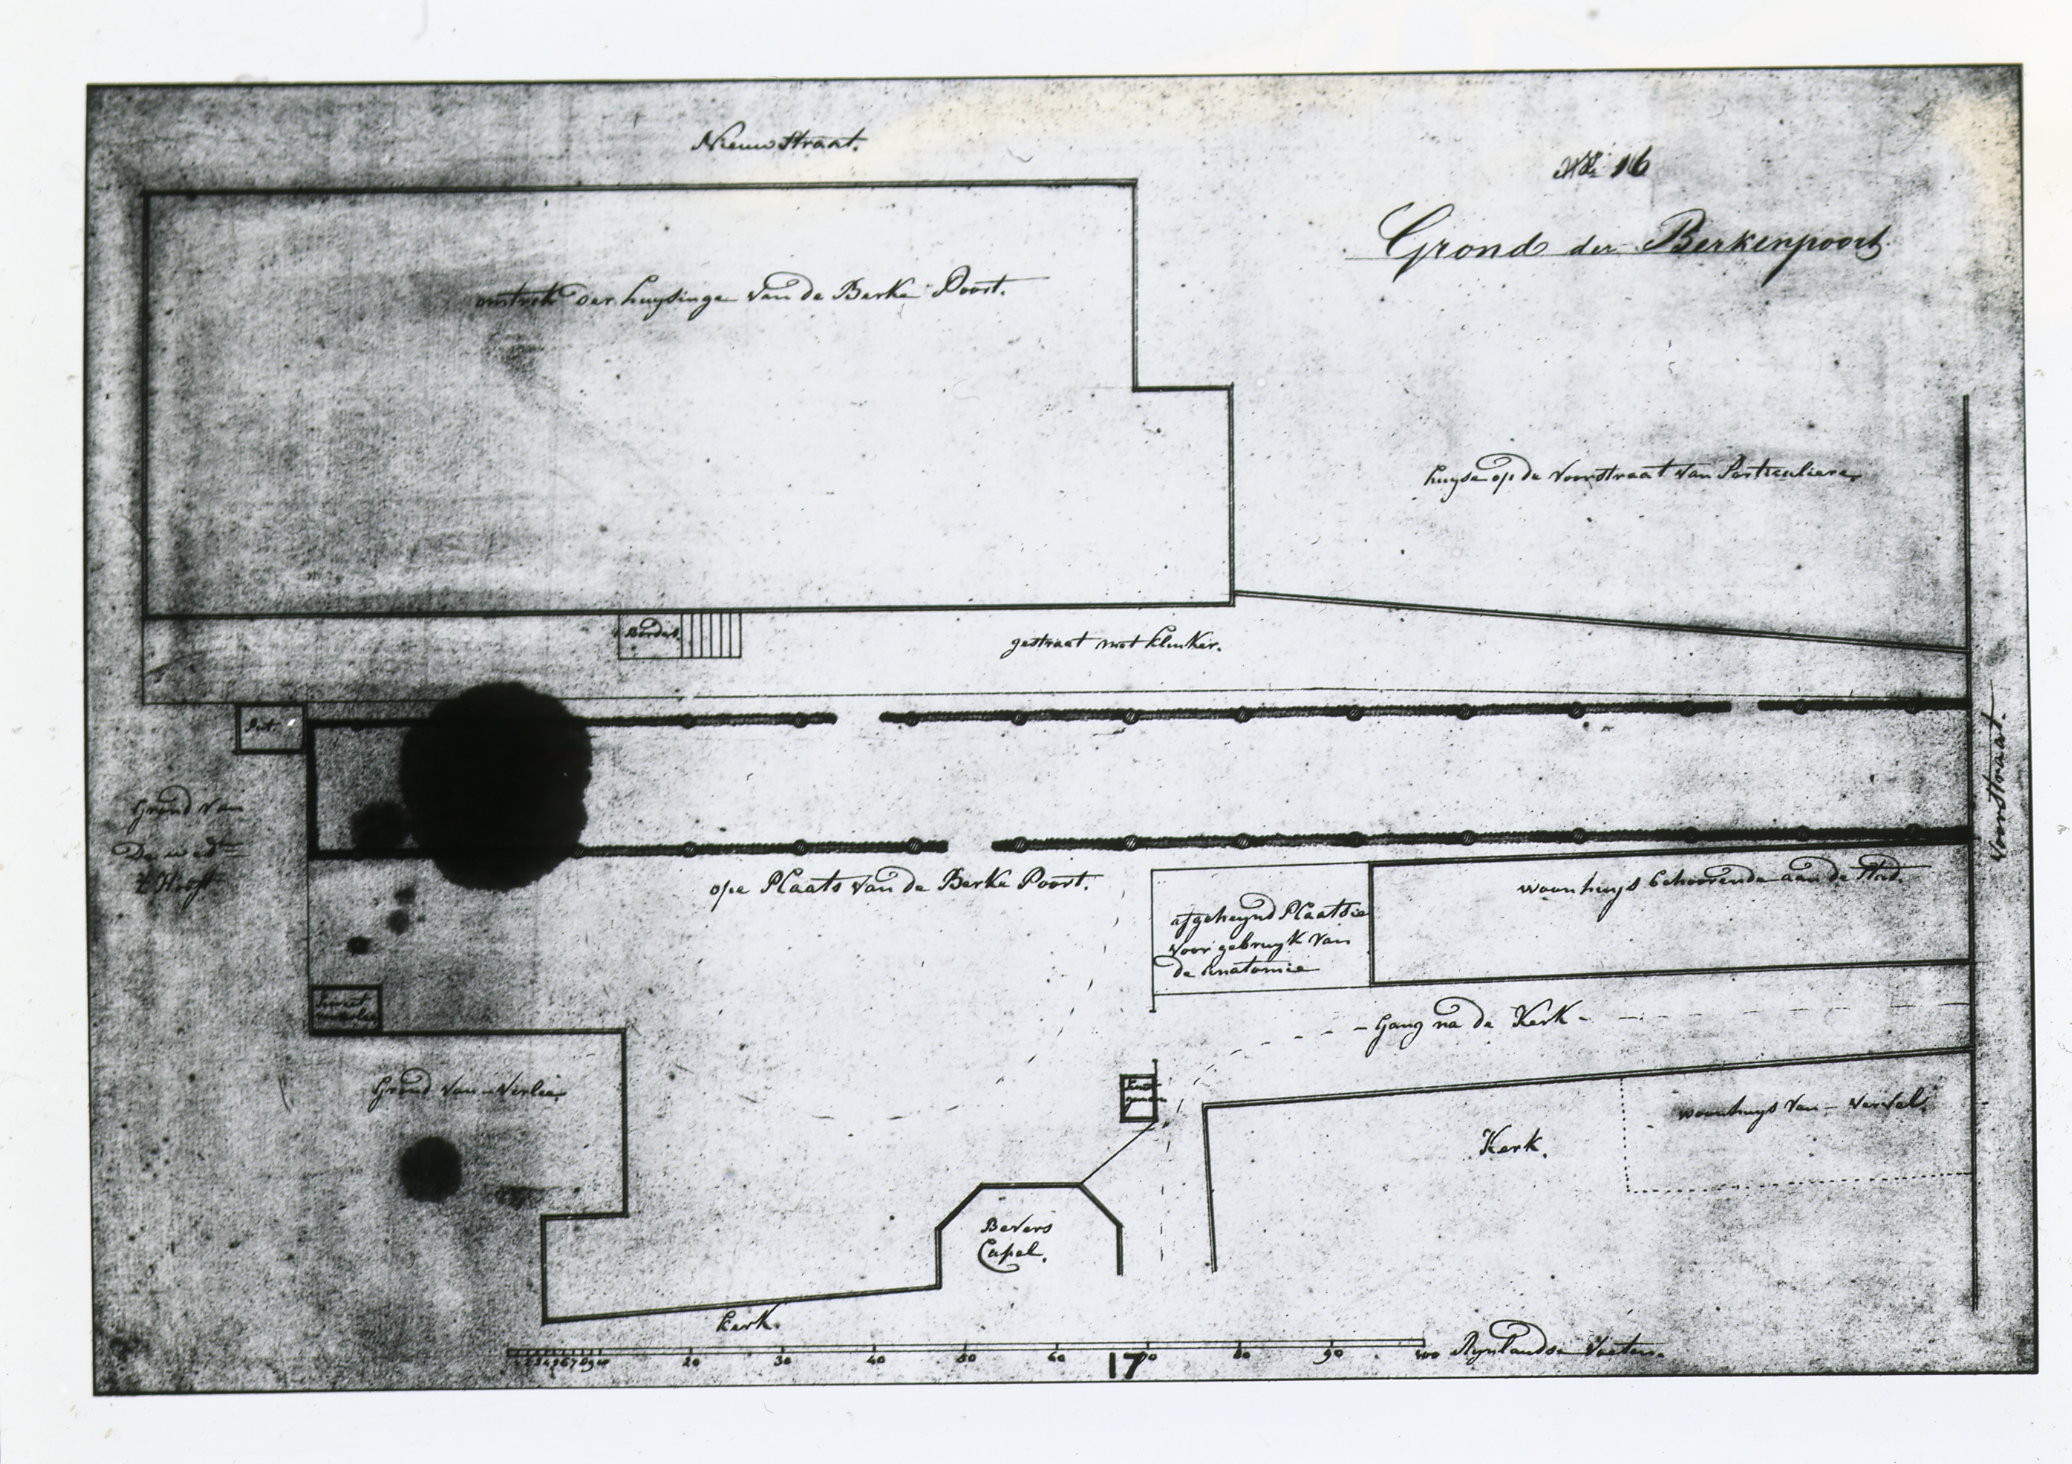 Nieuwstraat.
No. 16
Grond der Berkenpoort
omtrek der huysinge van de Berke Poort.
huyse op de voorstraat van Particuliere
Bordes.
gestraat met klinker.
Put.
Voorstraat.
Grond van
De wed
't Hooft
ope Plaats van de Berke Poort.
woonhuys behoorende aan de Stad.
afgeheynd Plaatsie
voor gebruyk van
de Anatomie
Secreet
Gang na de Kerk
Grond van Verlee
woonhuys van
Kerk.
Bevers
Capel.
Kerk.
1 2 3 4 5 6 7 8 9 10 20 30 40 50 60 70 80 90 100 Rynlandse Voeten.
17